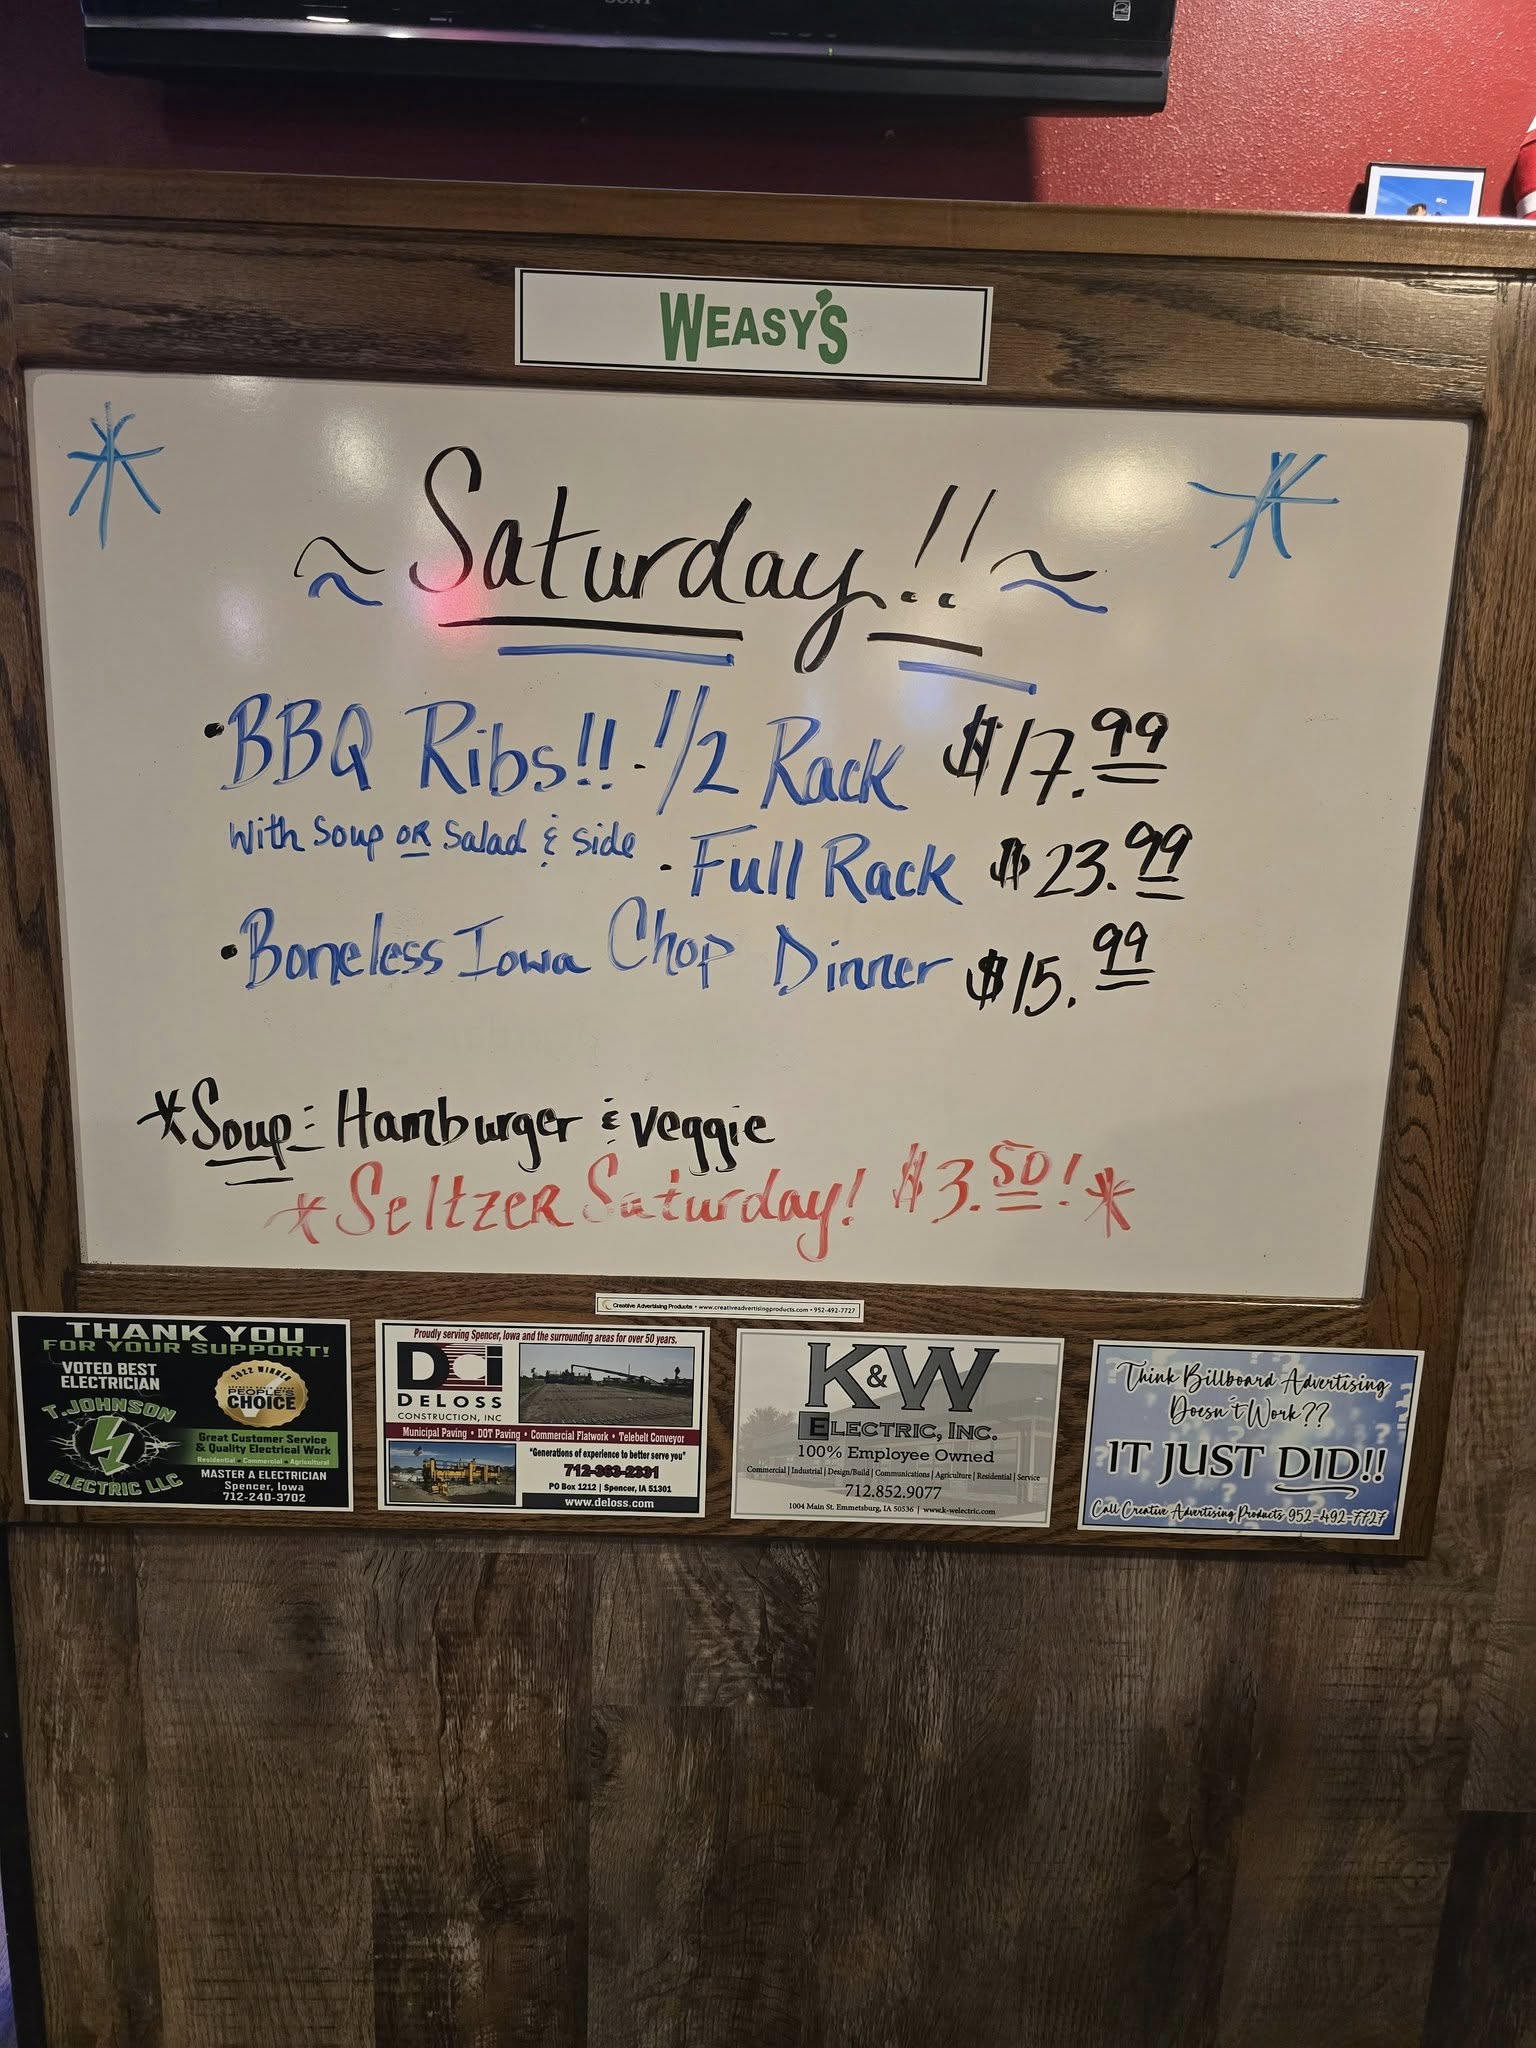 SONY
WEASY'S
~ Saturday!! ~
• BBQ Ribs!! • 1/2 Rack $17.99
With Soup OR Salad & side
• Full Rack $23.99
• Boneless Iowa Chop Dinner $15.99
*Soup: Hamburger & veggie
*Seltzer Saturday! $3.50! *
Creative Advertising Products • www.creativeadvertisingproducts.com • 952-492-7727
THANK YOU
FOR YOUR SUPPORT!
VOTED BEST
ELECTRICIAN
2022 WINNER
PEOPLE'S
CHOICE
T. JOHNSON
ELECTRIC LLC
Great Customer Service
& Quality Electrical Work
Residential • Commercial • Agricultural
MASTER A ELECTRICIAN
Spencer, Iowa
712-240-3702
Proudly serving Spencer, Iowa and the surrounding areas for over 50 years.
DCi
DELOSS
CONSTRUCTION, INC
Municipal Paving • DOT Paving • Commercial Flatwork • Telebelt Conveyor
"Generations of experience to better serve you"
712-363-2331
PO Box 1212 | Spencer, IA 51301
www.deloss.com
K&W
ELECTRIC, INC.
100% Employee Owned
Commercial | Industrial | Design/Build | Communications | Agriculture | Residential | Service
712.852.9077
1004 Main St. Emmetsburg, IA 50536 | www.k-welectric.com
Think Billboard Advertising
Doesn't Work??
IT JUST DID!!
Call Creative Advertising Products 952-492-7727